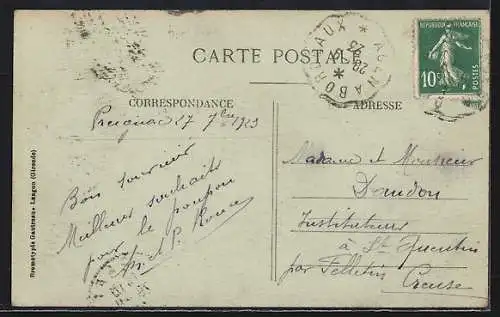 CARTE POSTALE
CORRESPONDANCE
ADRESSE
AGEN A BORDEAUX
REPUBLIQUE FRANÇAISE
10c
POSTES
Preignac 17 7bre 1923
Bon souvenir
Meilleurs souhaits
pour le poupon
Madame et Monsieur
Daudon
Instituteurs
à St Quentin
par Felletin
Creuse
Bromotypie Gautreau, Langon (Gironde)